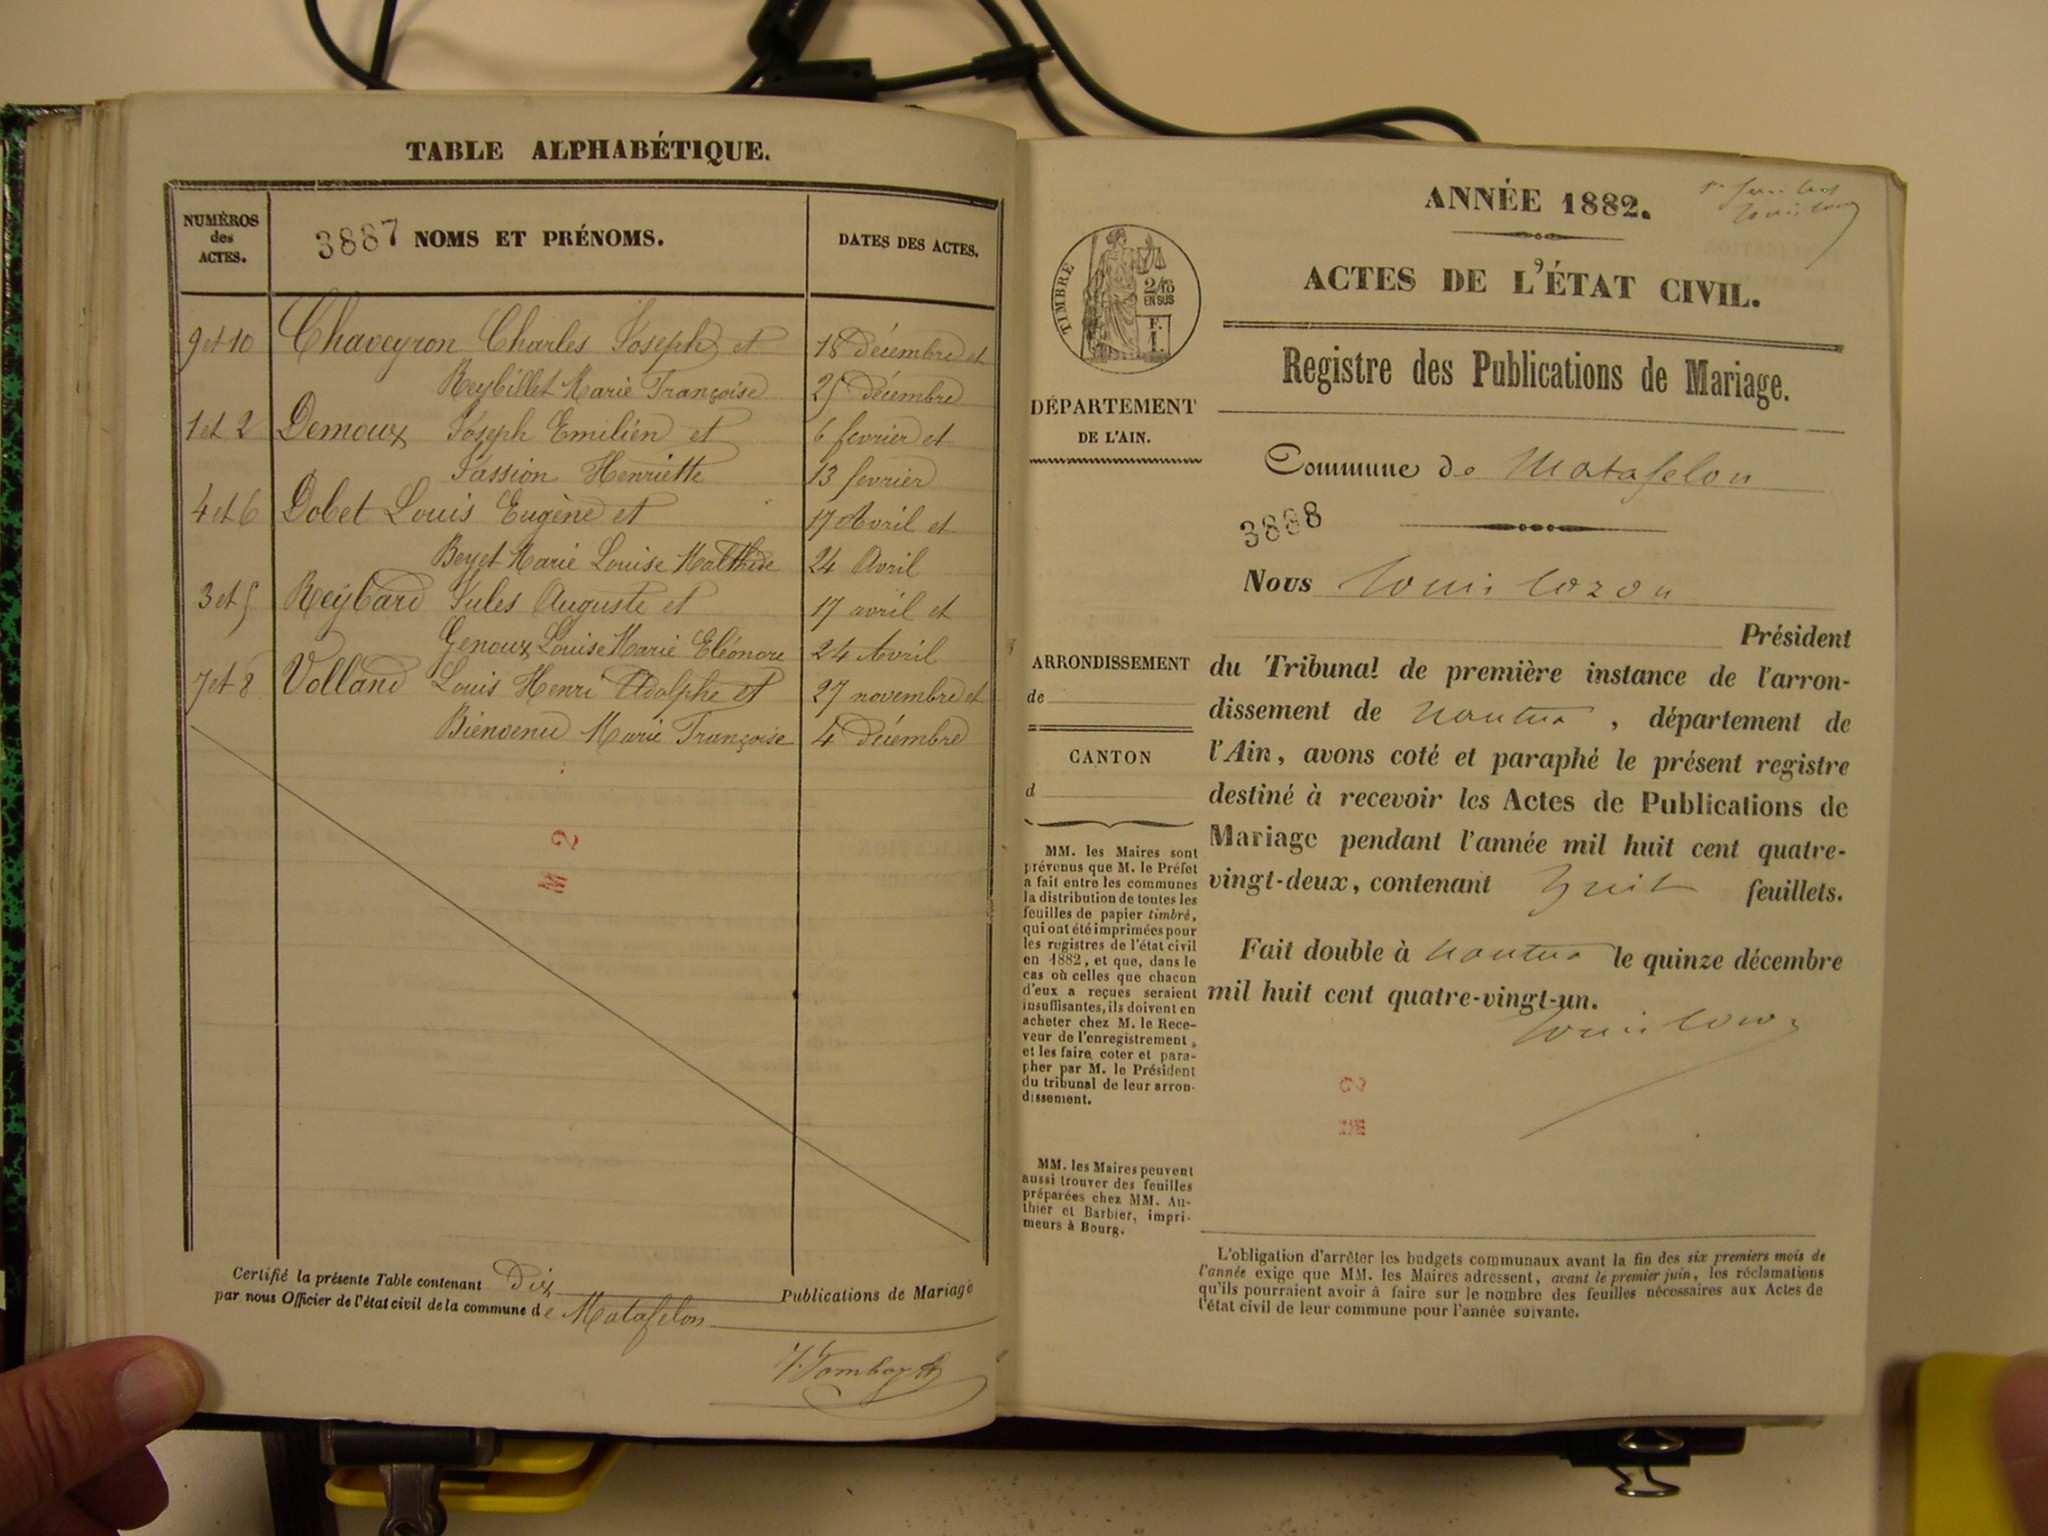 TABLE ALPHABÉTIQUE.
NUMÉROS
des
ACTES.
3887 NOMS ET PRÉNOMS.
DATES DES ACTES.
9 et 10 Chaveyron Charles Joseph et 18 décembre et
Reybillet Marie Françoise 25 décembre
1 et 2 Demoux Joseph Emilien et 6 fevrier et
Passion Henriette 13 fevrier
4 et 6 Dobet Louis Eugène et 17 Avril et
Beyet Marie Louise Mathilde 24 Avril
3 et 5 Reybard Jules Auguste et 17 avril et
Genoux Louise Marie Eléonore 24 Avril
7 et 8 Volland Louis Henri Adolphe et 27 novembre et
Bienvenu Marie Françoise 4 décembre
M 2
Certifié la présente Table contenant Dix Publications de Mariage
par nous Officier de l'état civil de la commune de Matafelon
ANNÉE 1882.
ACTES DE L'ÉTAT CIVIL.
TIMBRE
2/10
EN SUS
F.
1.
Registre des Publications de Mariage.
DÉPARTEMENT
DE L'AIN.
Commune de Matafelon
3888
Nous Louis Cozon
Président
du Tribunal de première instance de l'arron-
dissement de nantua, département de
l'Ain, avons coté et paraphé le présent registre
destiné à recevoir les Actes de Publications de
Mariage pendant l'année mil huit cent quatre-
vingt-deux, contenant huit feuillets.
Fait double à nantua le quinze décembre
mil huit cent quatre-vingt-un.
Louis Cozon
ARRONDISSEMENT
de
CANTON
d
MM. les Maires sont
prévenus que M. le Préfet
a fait entre les communes
la distribution de toutes les
feuilles de papier timbré,
qui ont été imprimées pour
les registres de l'état civil
en 1882, et que, dans le
cas où celles que chacun
d'eux a reçues seraient
insuffisantes, ils doivent en
acheter chez M. le Rece-
veur de l'enregistrement,
et les faire coter et para-
pher par M. le Président
du tribunal de leur arron-
dissement.
MM. les Maires peuvent
aussi trouver des feuilles
préparées chez MM. Au-
thier et Barbier, impri-
meurs à Bourg.
L'obligation d'arrêter les budgets communaux avant la fin des six premiers mois de
l'année exige que MM. les Maires adressent, avant le premier juin, les réclamations
qu'ils pourraient avoir à faire sur le nombre des feuilles nécessaires aux Actes de
l'état civil de leur commune pour l'année suivante.